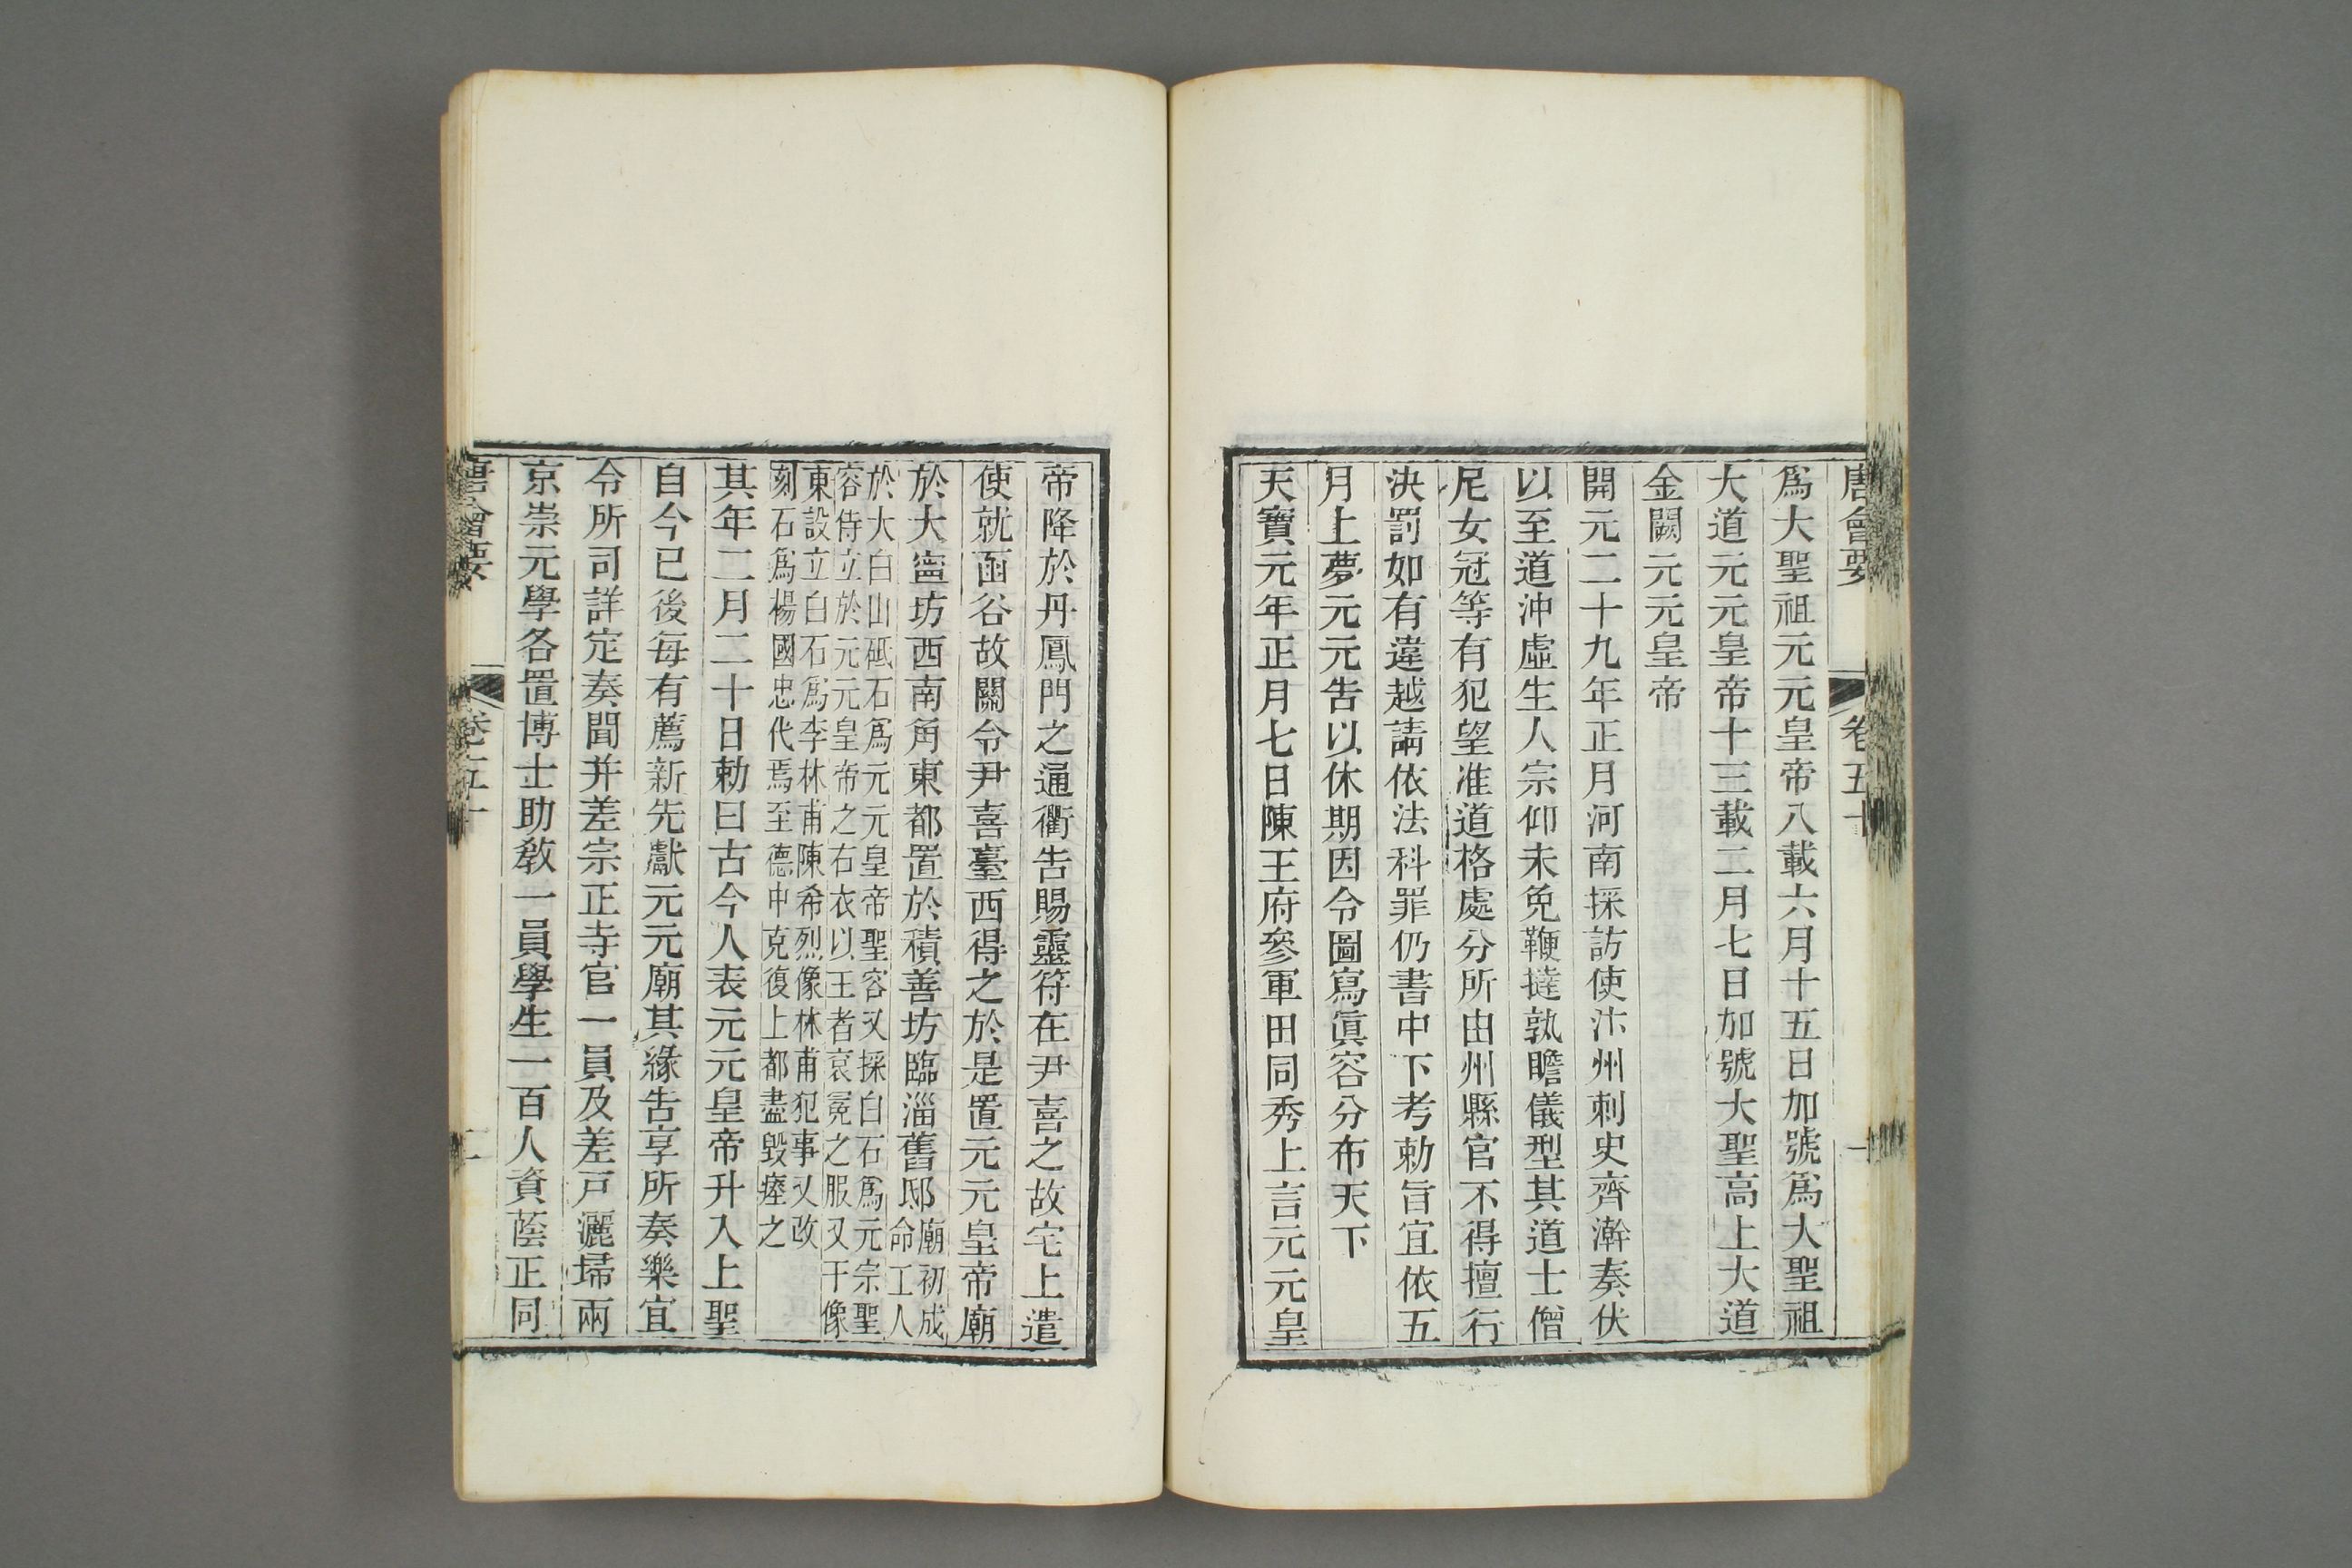 唐會要 卷五十 一
爲大聖祖元元皇帝八載六月十五日加號爲大聖祖
大道元元皇帝十三載二月七日加號大聖高上大道
金闕元元皇帝
開元二十九年正月河南採訪使汴州刺史齊澣奏伏
以至道沖虛生人宗仰未免鞭撻孰瞻儀型其道士僧
尼女冠等有犯望准道格處分所由州縣官不得擅行
決罰如有違越請依法科罪仍書中下考勅旨宜依五
月上夢元元告以休期因令圖寫眞容分布天下
天寶元年正月七日陳王府參軍田同秀上言元元皇
帝降於丹鳳門之通衢告賜靈符在尹喜之故宅上遣
使就函谷故關令尹喜臺西得之於是置元元皇帝廟
於大寧坊西南角東都置於積善坊臨淄舊邸廟初成命工人
於大白山砥石爲元元皇帝聖容又採白石爲元宗聖
容侍立於元元皇帝之右衣以王者袞冕之服又于像
東設立白石爲李林甫陳希烈像林甫犯事又改
刻石爲楊國忠代焉至德中克復上都盡毀瘞之
其年二月二十日勅曰古今人表元元皇帝升入上聖
自今已後每有薦新先獻元元廟其緣告享所奏樂宜
令所司詳定奏聞并差宗正寺官一員及差戸灑埽兩
京崇元學各置博士助敎一員學生一百人資蔭正同
唐會要 卷五十 二